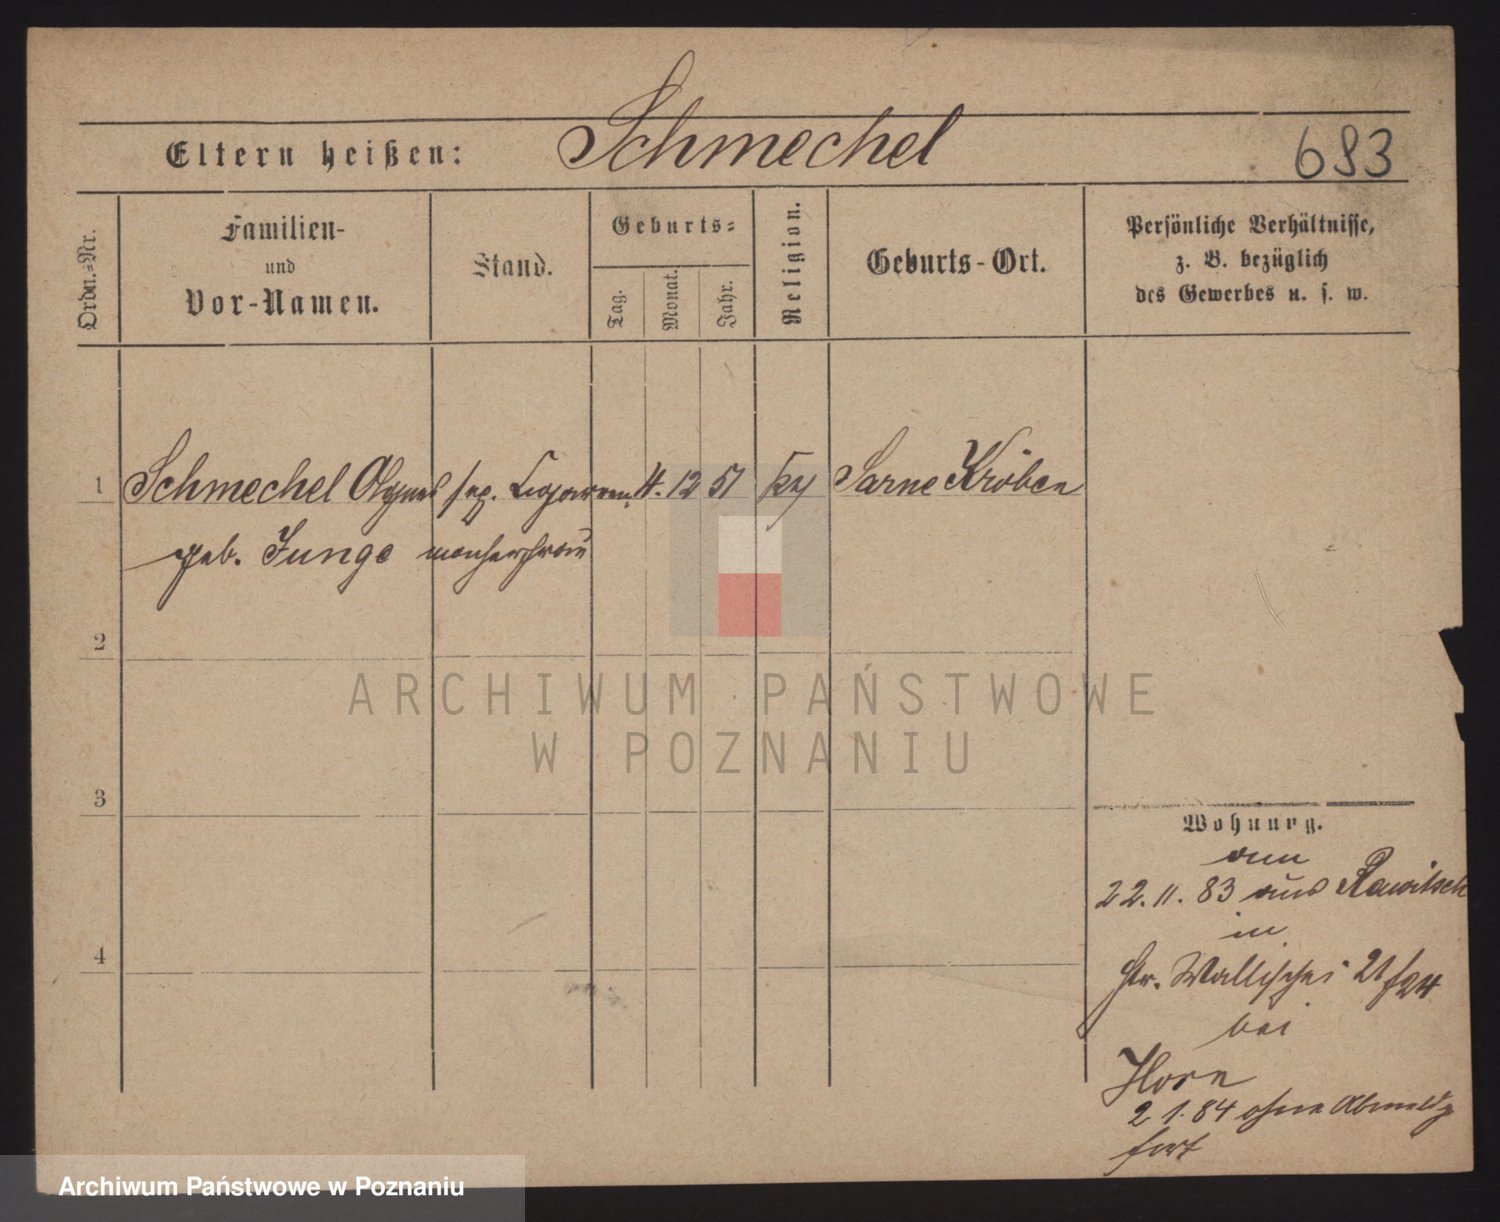 Eltern heißen: Schmechel 683
Ordn.-Nr.
Familien-
und
Vor-Namen.
Stand.
Geburts-
Tag.
Monat.
Jahr.
Religion.
Geburts-Ort.
Persönliche Verhältnisse,
z. B. bezüglich
des Gewerbes u. s. w.
1 Schmechel Agnes sep. Cigarren 4. 12 51 Sarne Kröben
geb. Junge macherfrau
2
ARCHIWUM PAŃSTWOWE
W POZNANIU
3
Wohnung.
am
22. 11. 83 aus Rawitsch
in
4
Gr. Wallischei 21/24
bei
Horn
2 1. 84 ohne Abmeldg
fort
Archiwum Państwowe w Poznaniu